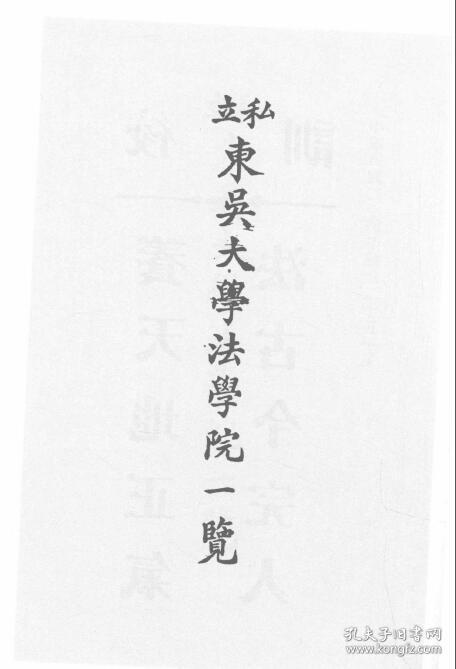 私立
東吳大學法學院一覽
校訓
養天地正氣
法古今完人
孔夫子旧书网
www.kongfz.com